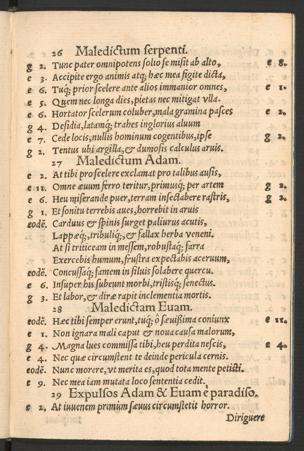 26 Maledictum serpenti.
g 2. Tunc pater omnipotens solio se misit ab alto, e 8.
e 3. Accipite ergo animis atq; hæc mea figite dicta,
e 6. Tuq; prior scelere ante alios immanior omnes, e 1.
e 5. Quem nec longa dies, pietas nec mitigat vlla.
e 6. Hortator scelerum coluber, mala gramina pasces e 2.
g 4. Desidia, latamq; trahes inglorius aluum
e 7. Cede locis, nullis hominum cogentibus, ipse g 2.
g 2. Tentus ubi argilla, & dumosis calculus aruis.
27 Maledictum Adam.
e 2. At tibi pro scelere exclamat pro talibus ausis,
e 11. Omne æuum ferro teritur, primusq; per artem g 2.
e 6. Heu miserande puer, terram insectabere rastris, g 2.
g 1. Et sonitu terrebis aues, horrebit in aruis
eodē. Carduus & spinis surget paliurus acutis,
Lappæq;, tribuliq;, & fallax herba veneni.
At si triticeam in messem, robustaq; farra
Exercebis humum, frustra expectabis aceruum,
eodē. Concussaq; famem in siluis solabere quercu.
e 6. Insuper his subeunt morbi, tristisq; senectus.
g 3. Et labor, & diræ rapit inclementia mortis.
28 Maledictam Euam.
eodē. Hæc tibi semper erunt, tuq; ô sæuissima coniunx e 11.
e 1. Non ignara mali caput & noua causa malorum,
g 4. Magna lues commissa tibi, heu perdita nescis, e 4.
e 4. Nec quæ circumstent te deinde pericula cernis.
eodē. Nunc morere, vt merita es, quod tota mente petisti:
e 9. Nec mea iam mutata loco sententia cedit.
29 Expulsos Adam & Euam è paradiso.
e 2. At iuuenem primùm sæuus circumstetit horror.
Diriguere